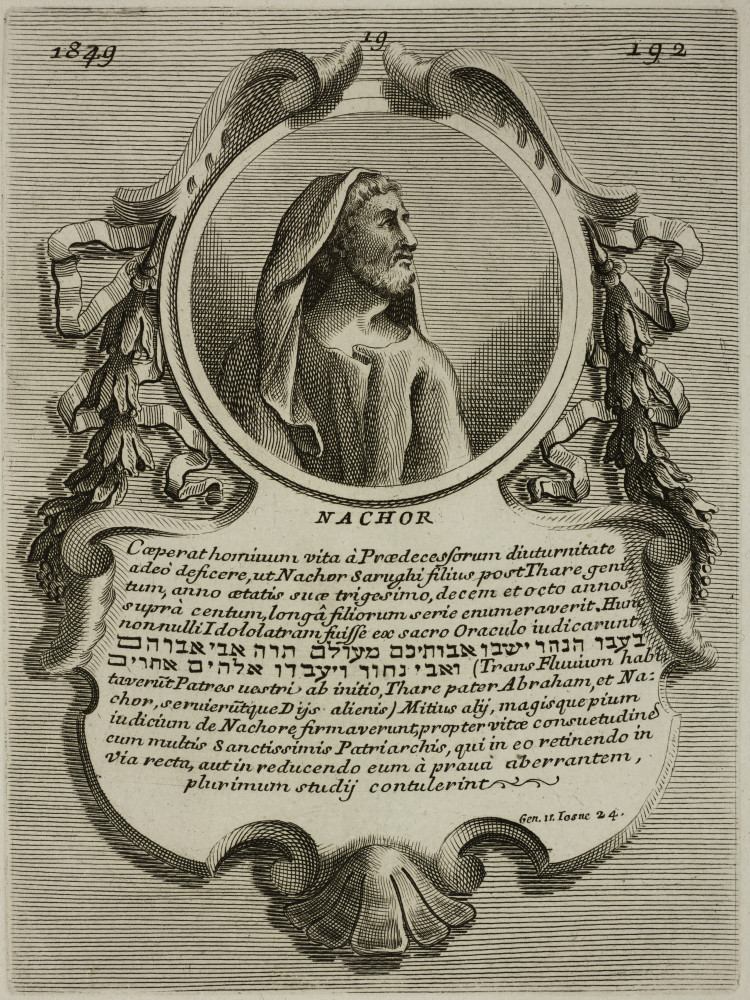 1849 19 192
NACHOR
Cæperat hominum vita à Prædecessorum diuturnitate
adeò deficere, ut Nachor Sarughi filius post Thare geni⸗
tum, anno ætatis suæ trigesimo, decem et octo annos
suprà centum, longâ filiorum serie enumeraverit. Hunc
nonnulli Idololatram fuisse ex sacro Oraculo iudicarunt
בעבו הנהר ישבו אבותיכם מעולם תרה אבי אברהם
ואבי נחור ויעבדו אלהים אחרים (Trans Fluuium habi⸗
taverūt Patres uestri ab initio, Thare pater Abraham, et Na⸗
chor, seruierūtque Dijs alienis) Mitius alij, magisque pium
iudicium de Nachore firmaverunt, propter vitæ consuetudinē
cum multis Sanctissimis Patriarchis, qui in eo retinendo in
via recta, aut in reducendo eum à prauâ aberrantem,
plurimum studij contulerint
Gen. 11. Iosue 24.